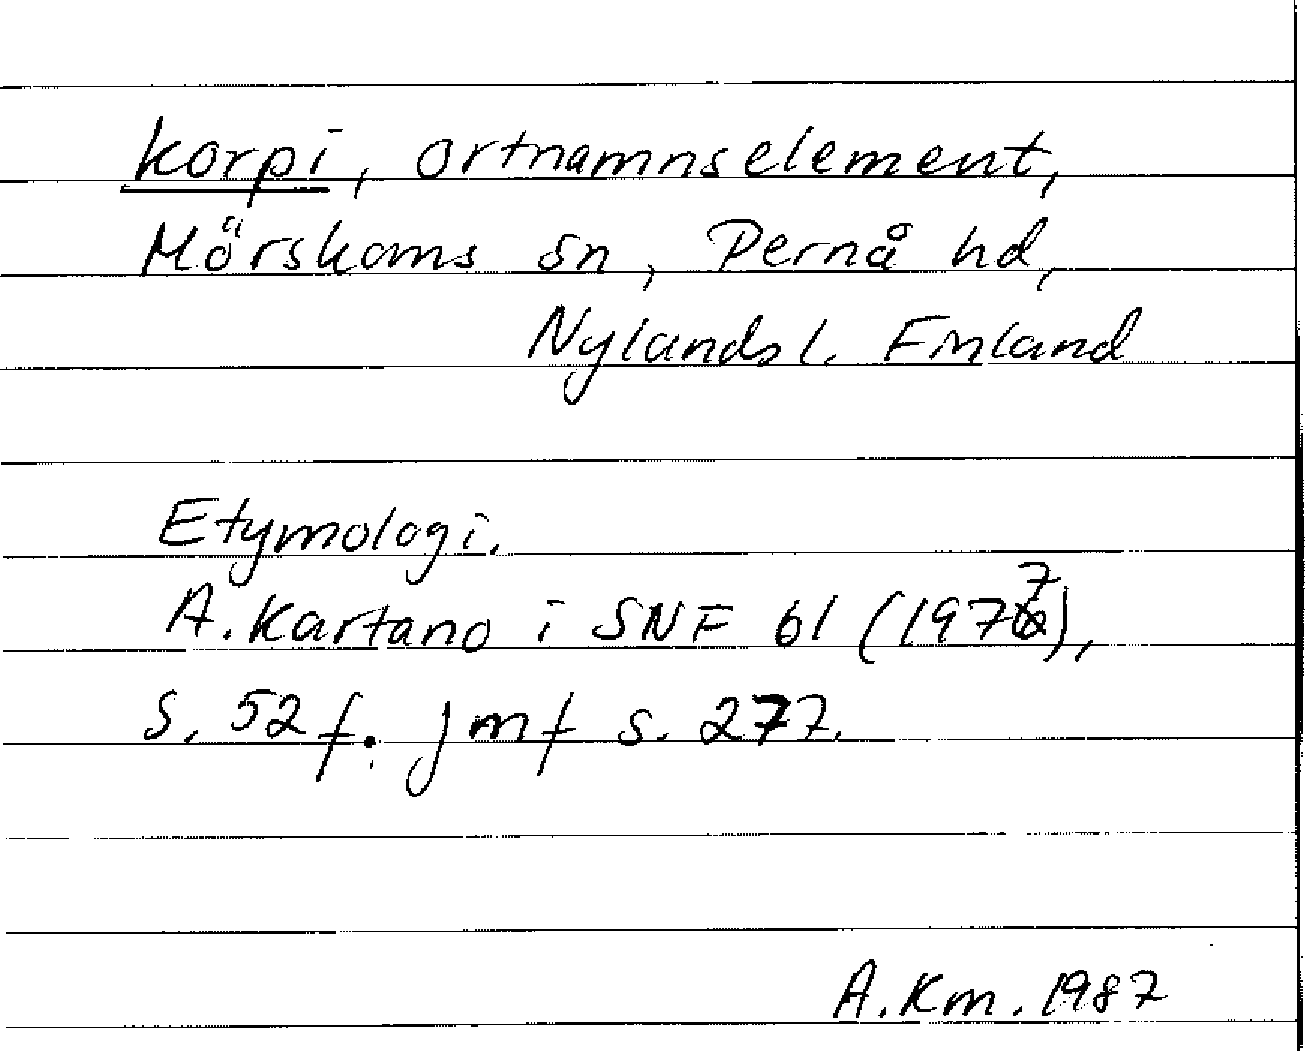 korpi, ortnamnselement,
Mörskoms sn, Pernå hd,
Nylands l. Finland
Etymologi.
A. Kartano i SNF 61 (1977),
s. 52 f. jmf s. 277.
A.Km. 1987